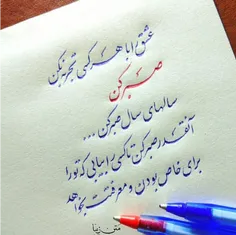 عشق را با هر کسی تجربه نکن
صبر کن
سالهای سال صبر کن ...
آنقدر صبر کن تا کسی را بیابی که تو را
برای خاص بودن و معرفتت بخواهد